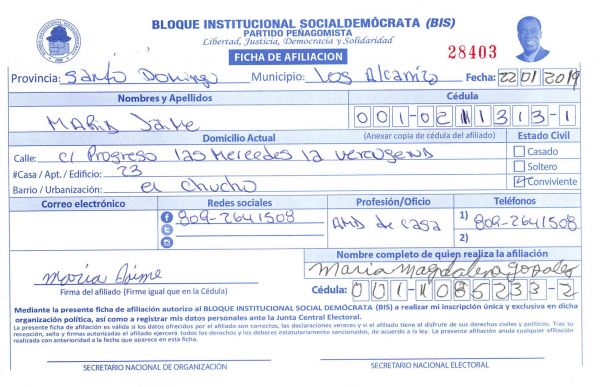 BLOQUE INSTITUCIONAL SOCIALDEMÓCRATA (BIS)
PARTIDO PEÑAGOMISTA
Libertad, Justicia, Democracia y Solidaridad
FICHA DE AFILIACION
28403
Provincia: Santo Domingo Municipio: Los Alcarrizo Fecha: 22/01/2019
Nombres y Apellidos
Cédula
Maria Jaime
001-0211313-1
Domicilio Actual
(Anexar copia de cédula del afiliado)
Estado Civil
Calle: c/ Progreso las Mercedes la
Casado
#Casa / Apt. / Edificio: 23
Soltero
Barrio / Urbanización: el chucho
Conviviente
Correo electrónico
Redes sociales
Profesión/Oficio
Teléfonos
809-2641508
AMD de casa
1) 809-2641508
2)
Nombre completo de quien realiza la afiliación
Maria Jaime
Maria Magdalena
Firma del afiliado (Firme igual que en la Cédula)
Cédula: 001-1085233-2
Mediante la presente ficha de afiliación autorizo al BLOQUE INSTITUCIONAL SOCIAL DEMÓCRATA (BIS) a realizar mi inscripción única y exclusiva en dicha
organización política, así como a registrar mis datos personales ante la Junta Central Electoral.
La presente ficha de afiliación es válida si los datos ofrecidos por el afiliado son correctos, las declaraciones veraces y si el afiliado tiene el disfrute de sus derechos civiles y políticos. Tras su
recepción, sello y firmas autorizadas el afiliado ejercerá todos los derechos y los deberes estatutariamente sancionados, de acuerdo a la ley. La presente afiliación anula cualquier afiliación
realizada con anterioridad a la fecha que aparece en esta ficha.
SECRETARIO NACIONAL DE ORGANIZACIÓN
SECRETARIO NACIONAL ELECTORAL